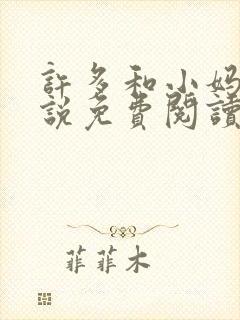 許多和小媽
說免費閱讀
菲菲木